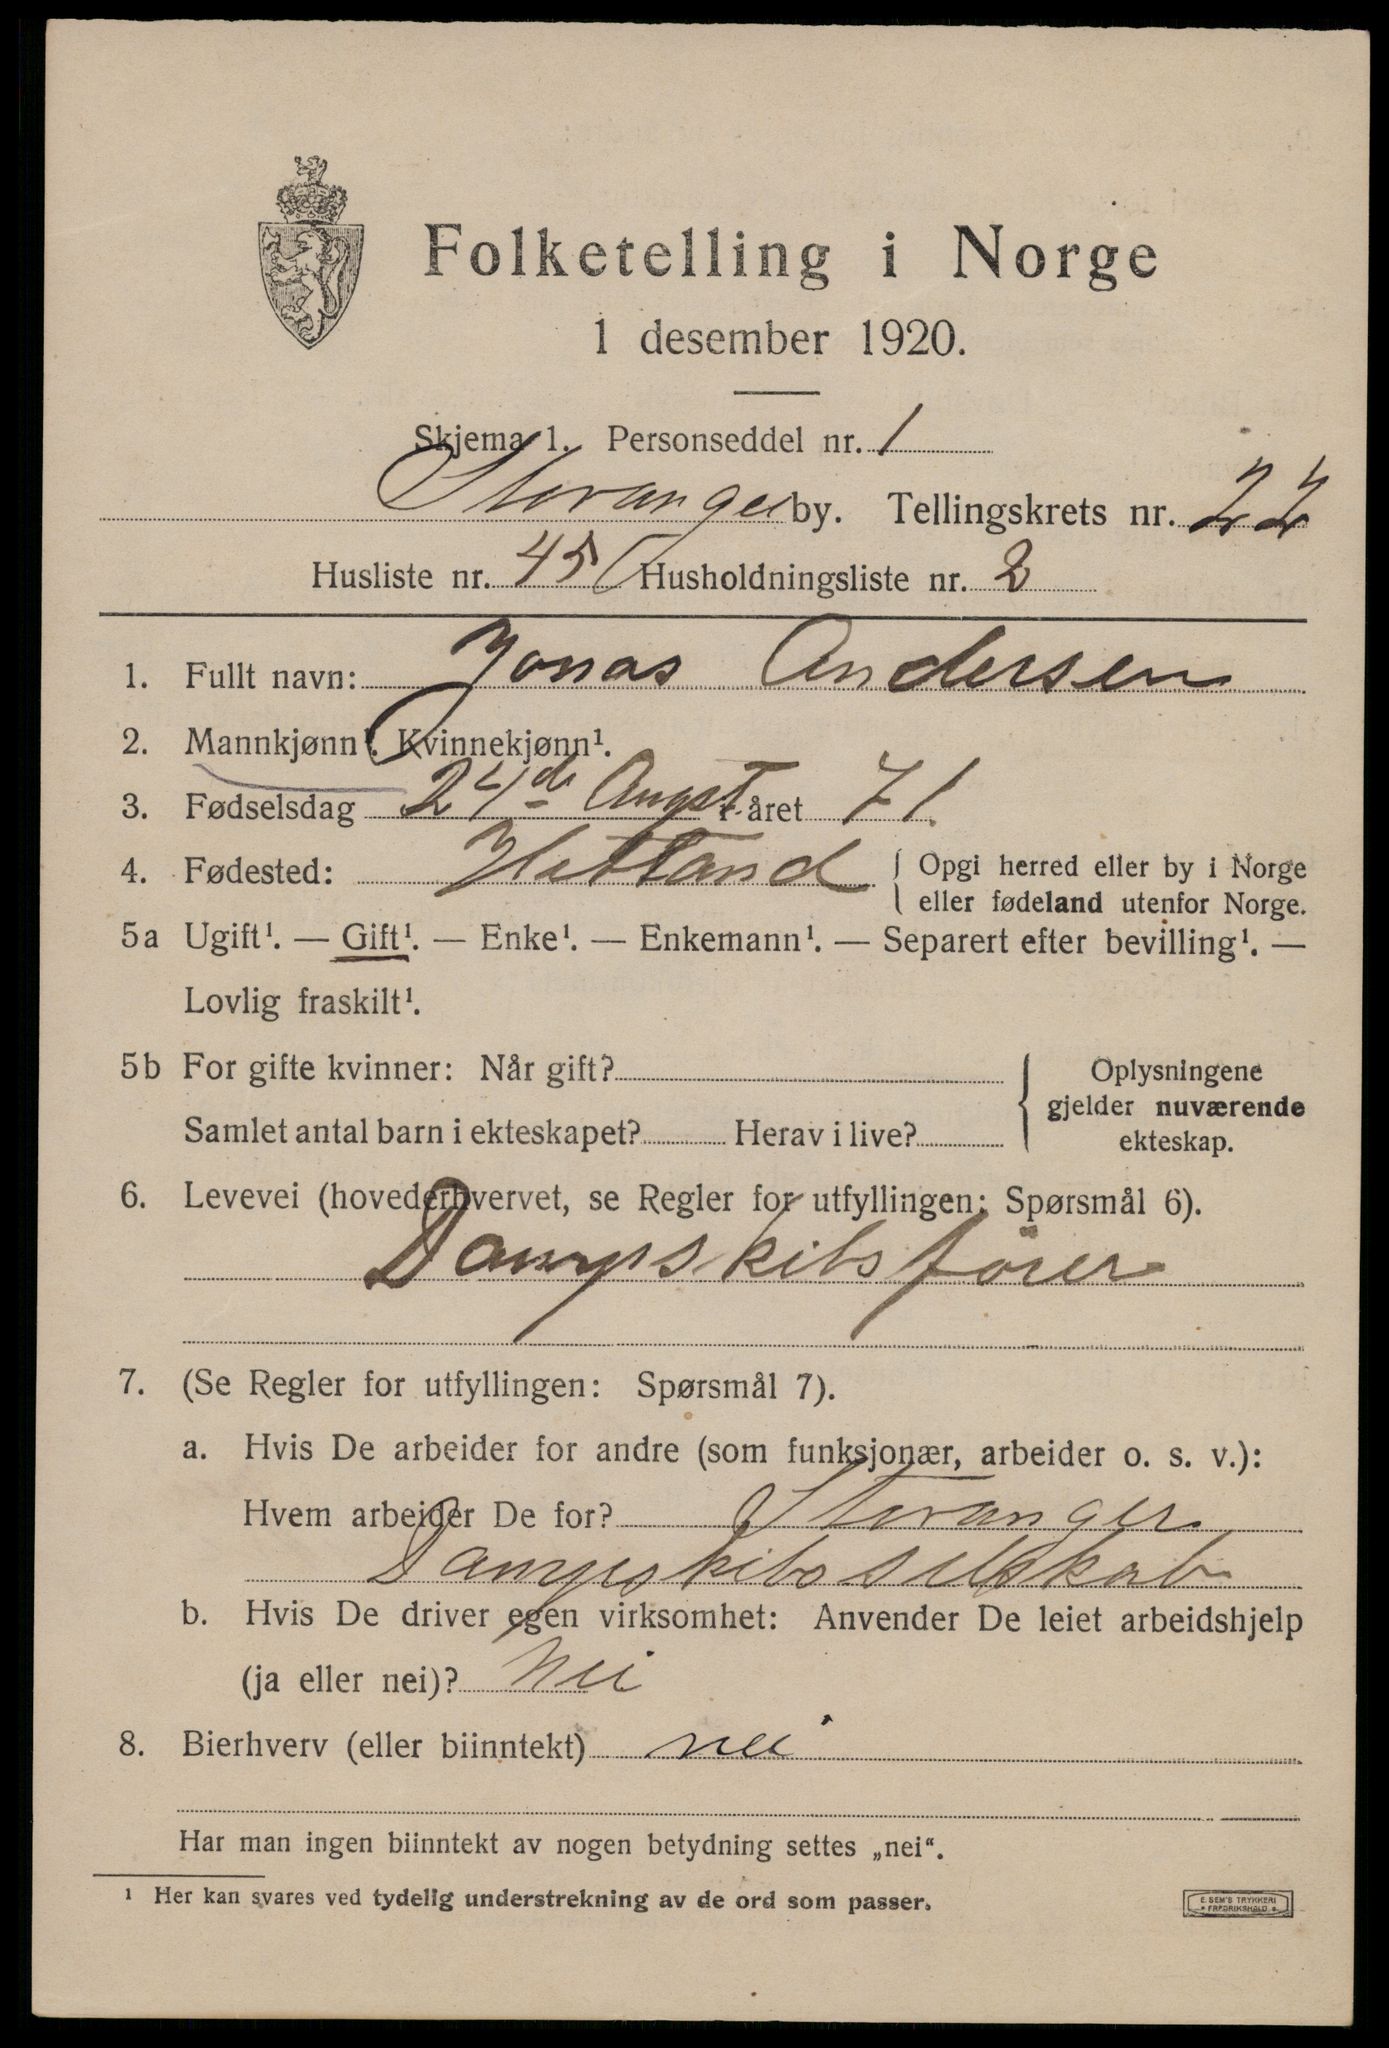 Folketelling i Norge
1 desember 1920.
Skjema 1. Personseddel nr. 1
Stavanger by. Tellingskrets nr. 22
Husliste nr. 45 Husholdningsliste nr. 2
1. Fullt navn: Jonas Andersen
2. Mannkjønn¹. Kvinnekjønn¹.
3. Fødselsdag 24de Augst i året 71.
4. Fødested: Hetland { Opgi herred eller by i Norge
eller fødeland utenfor Norge.
5a Ugift¹. — Gift¹. — Enke¹. — Enkemann¹. — Separert efter bevilling¹. —
Lovlig fraskilt¹.
5b For gifte kvinner: Når gift? { Oplysningene
gjelder nuværende
Samlet antal barn i ekteskapet? Herav i live? ekteskap.
6. Levevei (hovederhvervet, se Regler for utfyllingen: Spørsmål 6).
Dampskibsfører
7. (Se Regler for utfyllingen: Spørsmål 7).
a. Hvis De arbeider for andre (som funksjonær, arbeider o. s. v.):
Hvem arbeider De for? Stavanger
Dampskibsselskab
b. Hvis De driver egen virksomhet: Anvender De leiet arbeidshjelp
(ja eller nei)? Nei
8. Bierhverv (eller biinntekt) nei
Har man ingen biinntekt av nogen betydning settes „nei“.
¹ Her kan svares ved tydelig understrekning av de ord som passer.
E. SEM'S TRYKKERI
FREDRIKSHALD